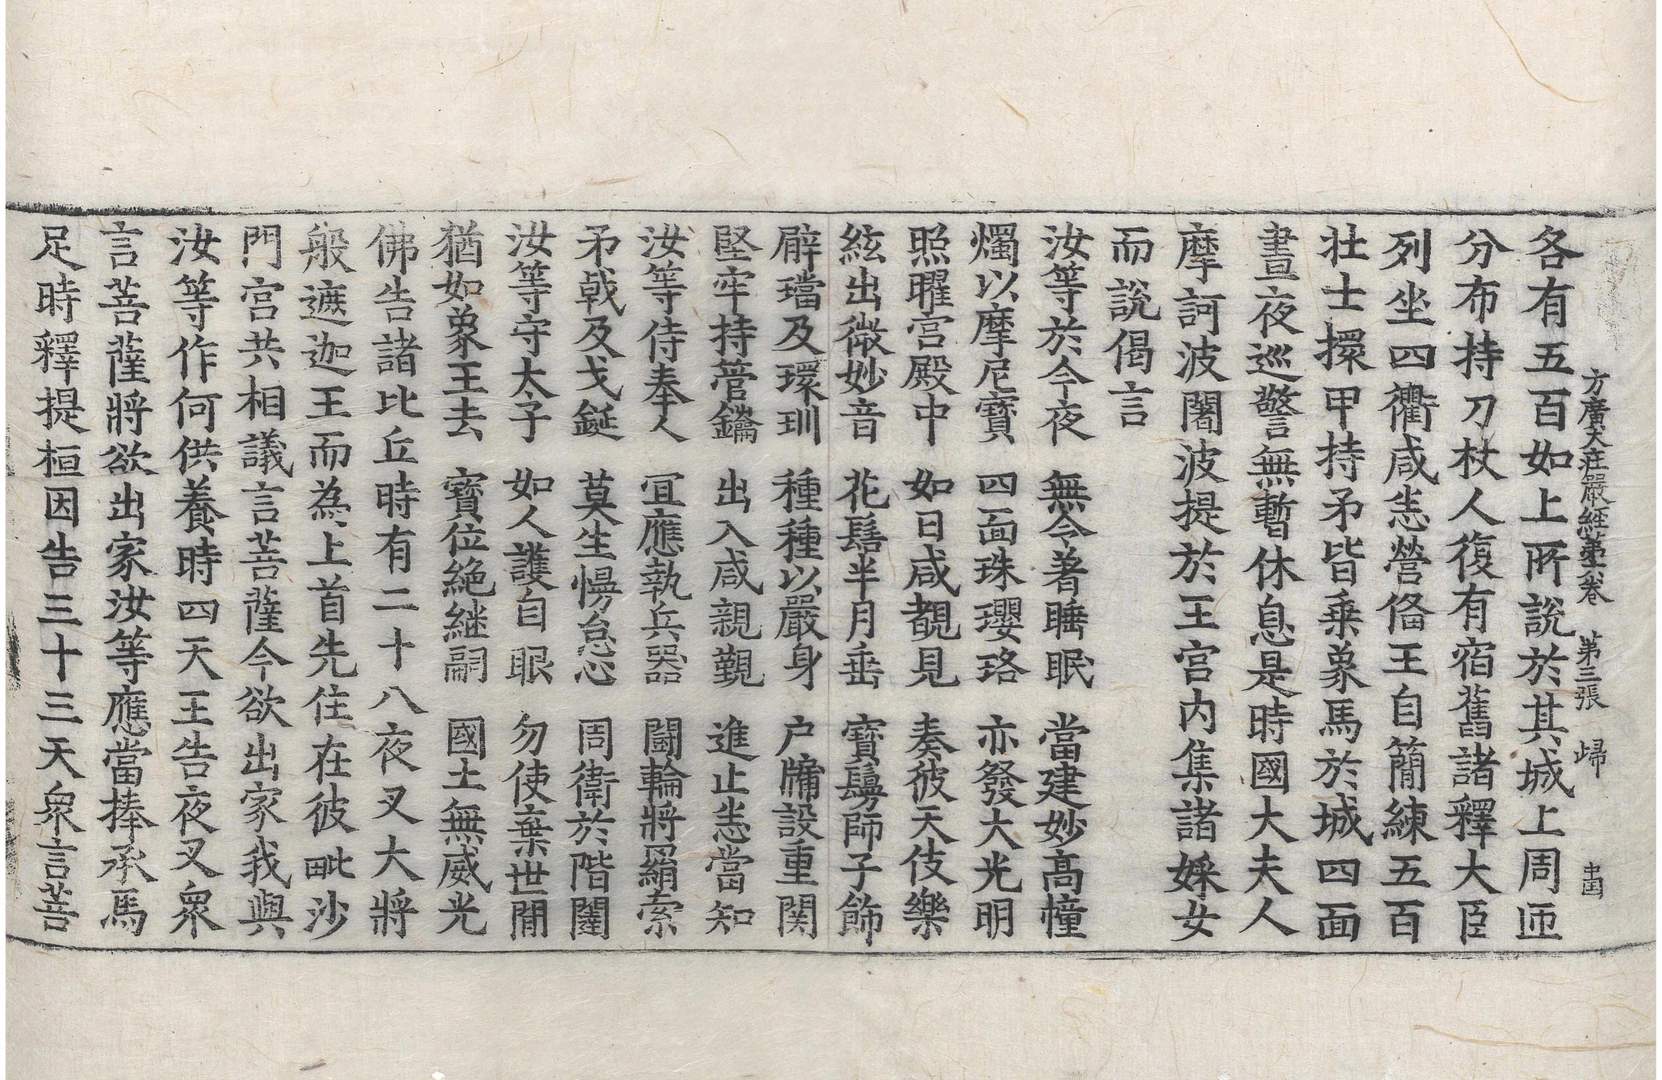 方廣大莊嚴經第六卷　第三張　歸
各有五百如上所說於其城上周匝
分布持刀杖人復有宿舊諸釋大臣
列坐四衢咸恙營俻王自簡練五百
壯士擐甲持矛皆乗象馬於城四面
晝夜巡警無暫休息是時國大夫人
摩訶波闍波提於王宮内集諸婇女
而說偈言
汝等於今夜　無令著睡眠　當建妙髙幢
燭以摩尼寶　四面珠瓔珞　亦發大光明
照曜宮殿中　如日咸覩見　奏彼天伎樂
絃出微妙音　花鬘半月垂　寶鬘師子飾
臂璫及環玔　種種以嚴身　户牖設重関
堅牢持管鑰　出入咸親覲　進止恙當知
汝等侍奉人　冝應執兵器　闘輪將羂索
矛戟及戈鋋　莫生慢怠心　周衛於階闥
汝等守太子　如人護自眼　勿使棄世間
猶如象王去　寶位絶継嗣　國土無威光
佛告諸比丘時有二十八夜叉大將
般遮迦王而為上首先住在彼毗沙
門宮共相議言菩薩今欲出家我與
汝等作何供養時四天王告夜叉衆
言菩薩將欲出家汝等應當捧承馬
足時釋提桓因告三十三天衆言菩